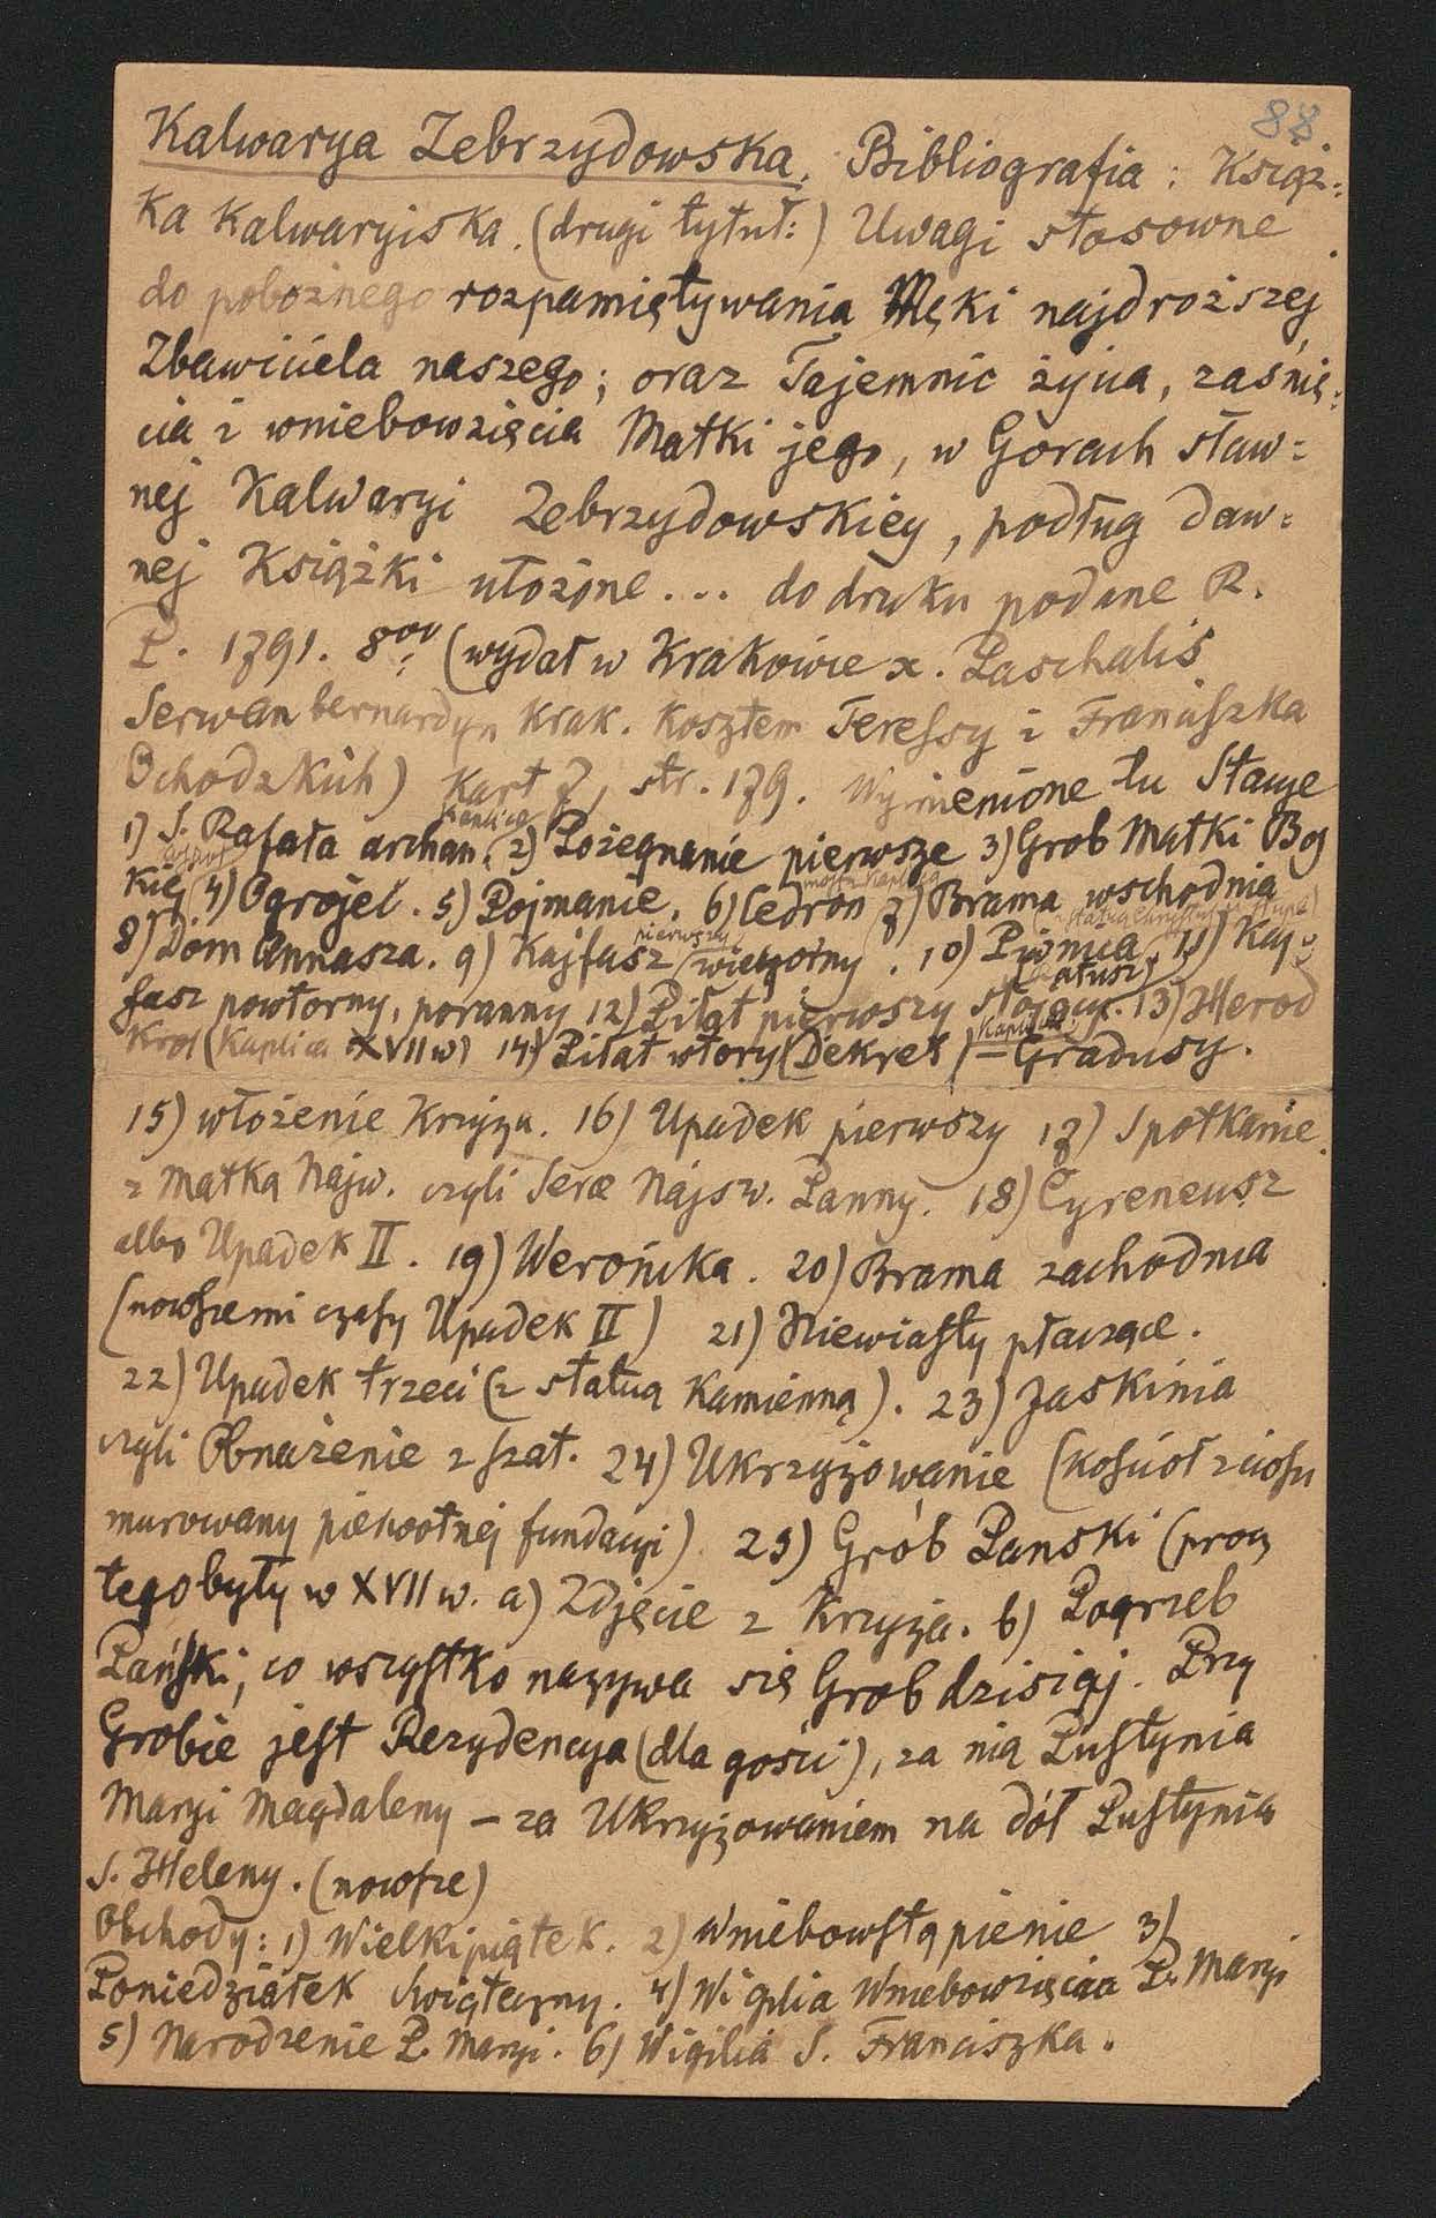 88.
Kalwarya Zebrzydowska. Bibliografia: Książ=
ka Kalwaryiska. (drugi tytuł:) Uwagi stosowne
do pobożnego rozpamiętywania Męki najdroższej
Zbawiciela naszego; oraz Tajemnic życia, zaśnię=
cia i wniebowzięcia Matki jego, w Gorach sław=
nej Kalwaryi Zebrzydowskiey, podług daw=
nej Książki ułożone... do druku podane R.
P. 1791. 8ov (wydał w Krakowie x. Paschalis
Serwan bernardyn Krak. Kosztem Teressy i Franciszka
Ochodzkich) Kart 7, str. 179. Wymienione tu Stacye
1) S. Rafała archan. 2) Pożegnanie pierwsze 3) Grob Matki Bos
kiej 4) Ogrojec. 5) Pojmanie. 6) Cedron 7) Brama wschodnia
8) Dom Annasza. 9) Kajfasz pierwszy (wieczorny). 10) Piwnica 11) Kaj=
fasz powtorny, poranny 12) Piłat pierwszy (Ratusz) 13) Herod
Krol (Kaplica XVII w) 14) Piłat wtory (Dekret) = Kaplica Gradusy.
15) włożenie Krzyża. 16) Upadek pierwszy 17) Spotkanie
z Matka Najw. czyli Serce Najsw. Panny. 18) Cyreneusz
albo Upadek II. 19) Weronika. 20) Brama zachodnia
(nowszemi czasy Upadek II) 21) Niewiasty płaczące.
22) Upadek trzeci (z statuą Kamienną). 23) Jaskinia
czyli Obnażenie z szat. 24) Ukrzyżowanie (kościoł z ciosu
murowany pierwotnej fundacyi). 25) Grób Panski (procz
tego były w XVII w. a) Zdjęcie z Krzyża. b) Pogrzeb
Pański, co wszystko nazywa się Grob dzisiaj. Przy
Grobie jest Rezydencya (dla gości), za nią Pustynia
Maryi Magdaleny – za Ukrzyżowaniem na dół Pustynia
S. Heleny. (nowsze)
Obchody: 1) Wielki piątek. 2) Wniebowstąpienie 3)
Poniedziałek Swiąteczny. 4) Wigilia Wniebowzięcia P. Maryi
5) Narodzenie P. Maryi. 6) Wigilia S. Franciszka.